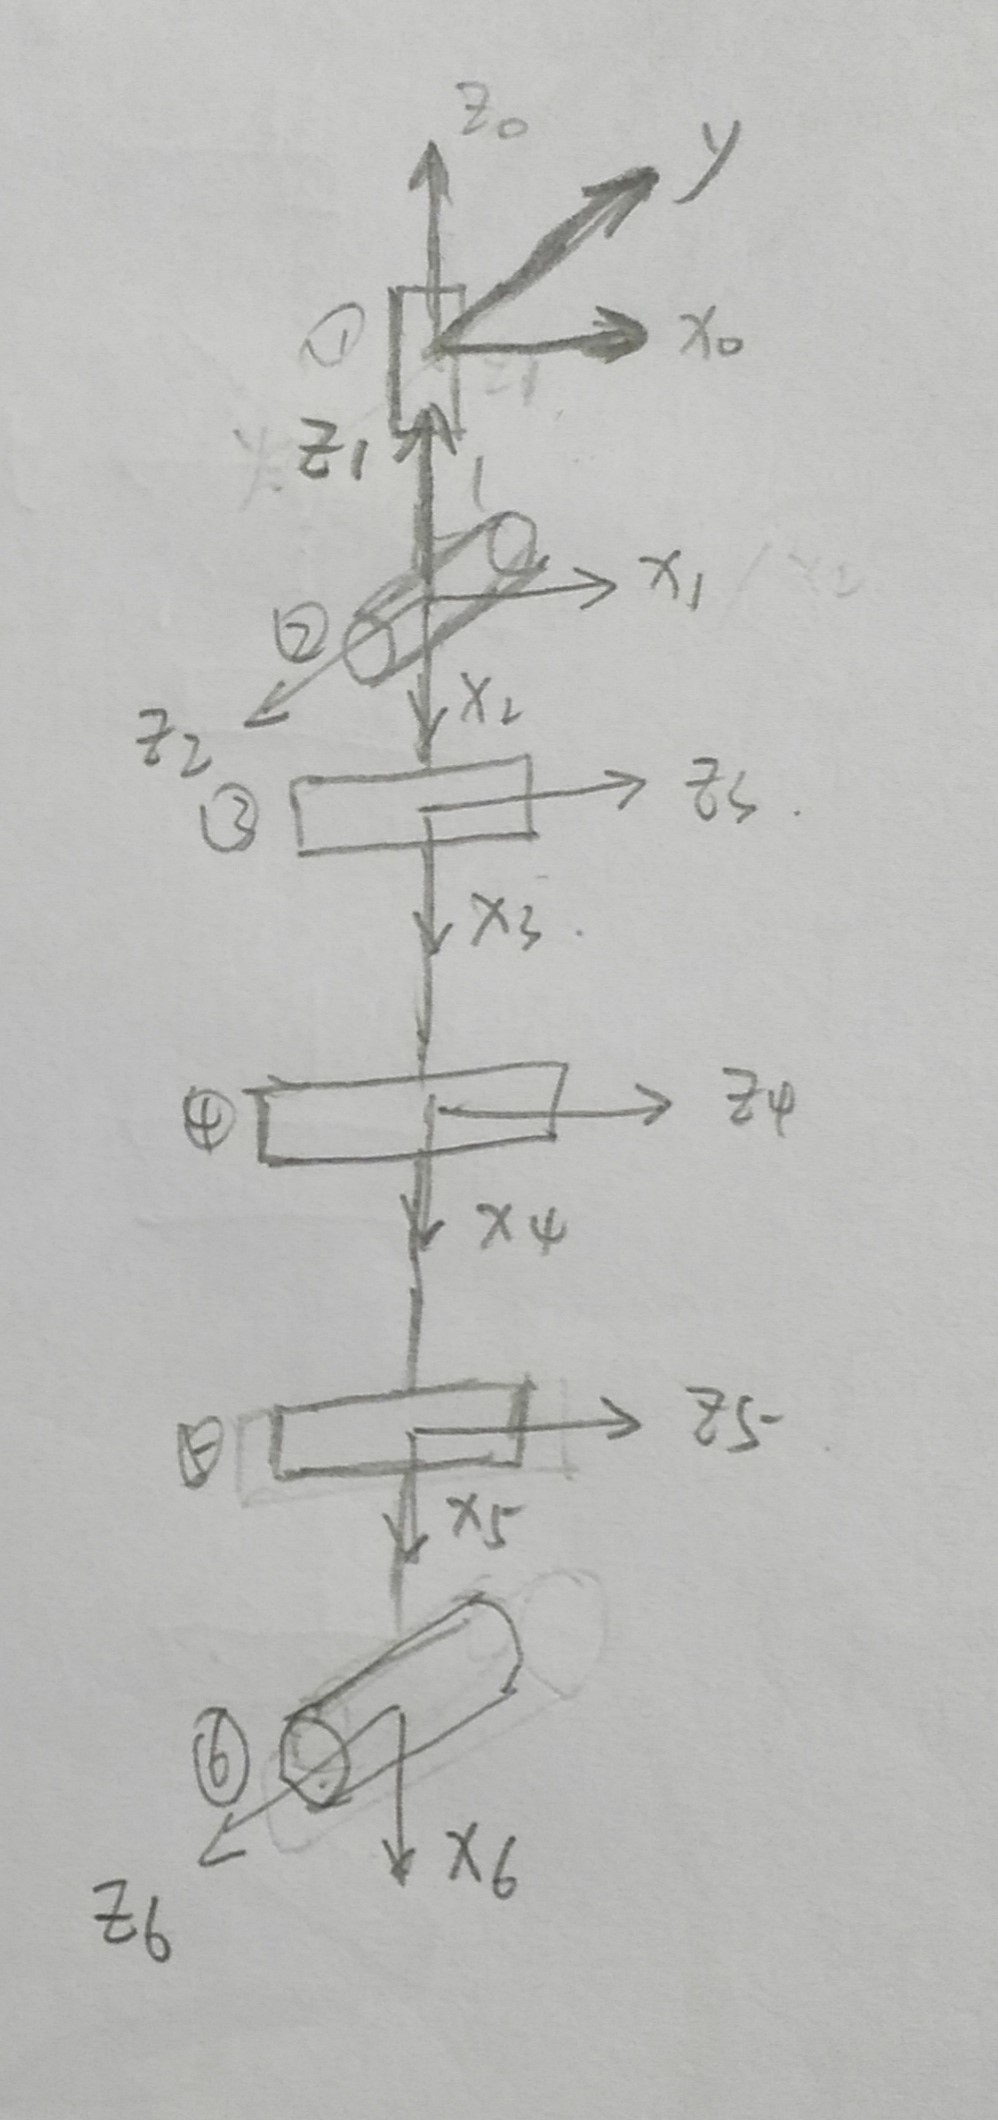 z₀
y
①
x₀
z₁
x₁
②
x₂
z₂
③
z₃
x₃
④
z₄
x₄
⑤
z₅
x₅
⑥
x₆
z₆